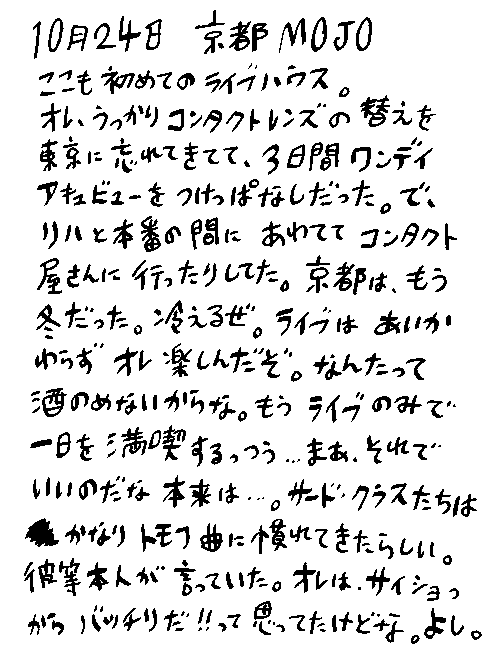 10月24日 京都 MOJO
ここも初めてのライブハウス。
オレ、うっかりコンタクトレンズの替えを
東京に忘れてきてて、3日間ワンデイ
アキュビューをつけっぱなしだった。で、
リハと本番の間にあわててコンタクト
屋さんに行ったりしてた。京都は、もう
冬だった。冷えるぜ。ライブはあいか
わらずオレ楽しんだぞ。なんたって
酒のめないからな。もうライブのみで
一日を満喫するっつう…まあ、それで
いいのだな本来は…。サード・クラスたちは
かなりトモフ曲に慣れてきたらしい。
彼等本人が言っていた。オレは、サイショっ
からバッチリだ!!って思ってたけどな。よし。